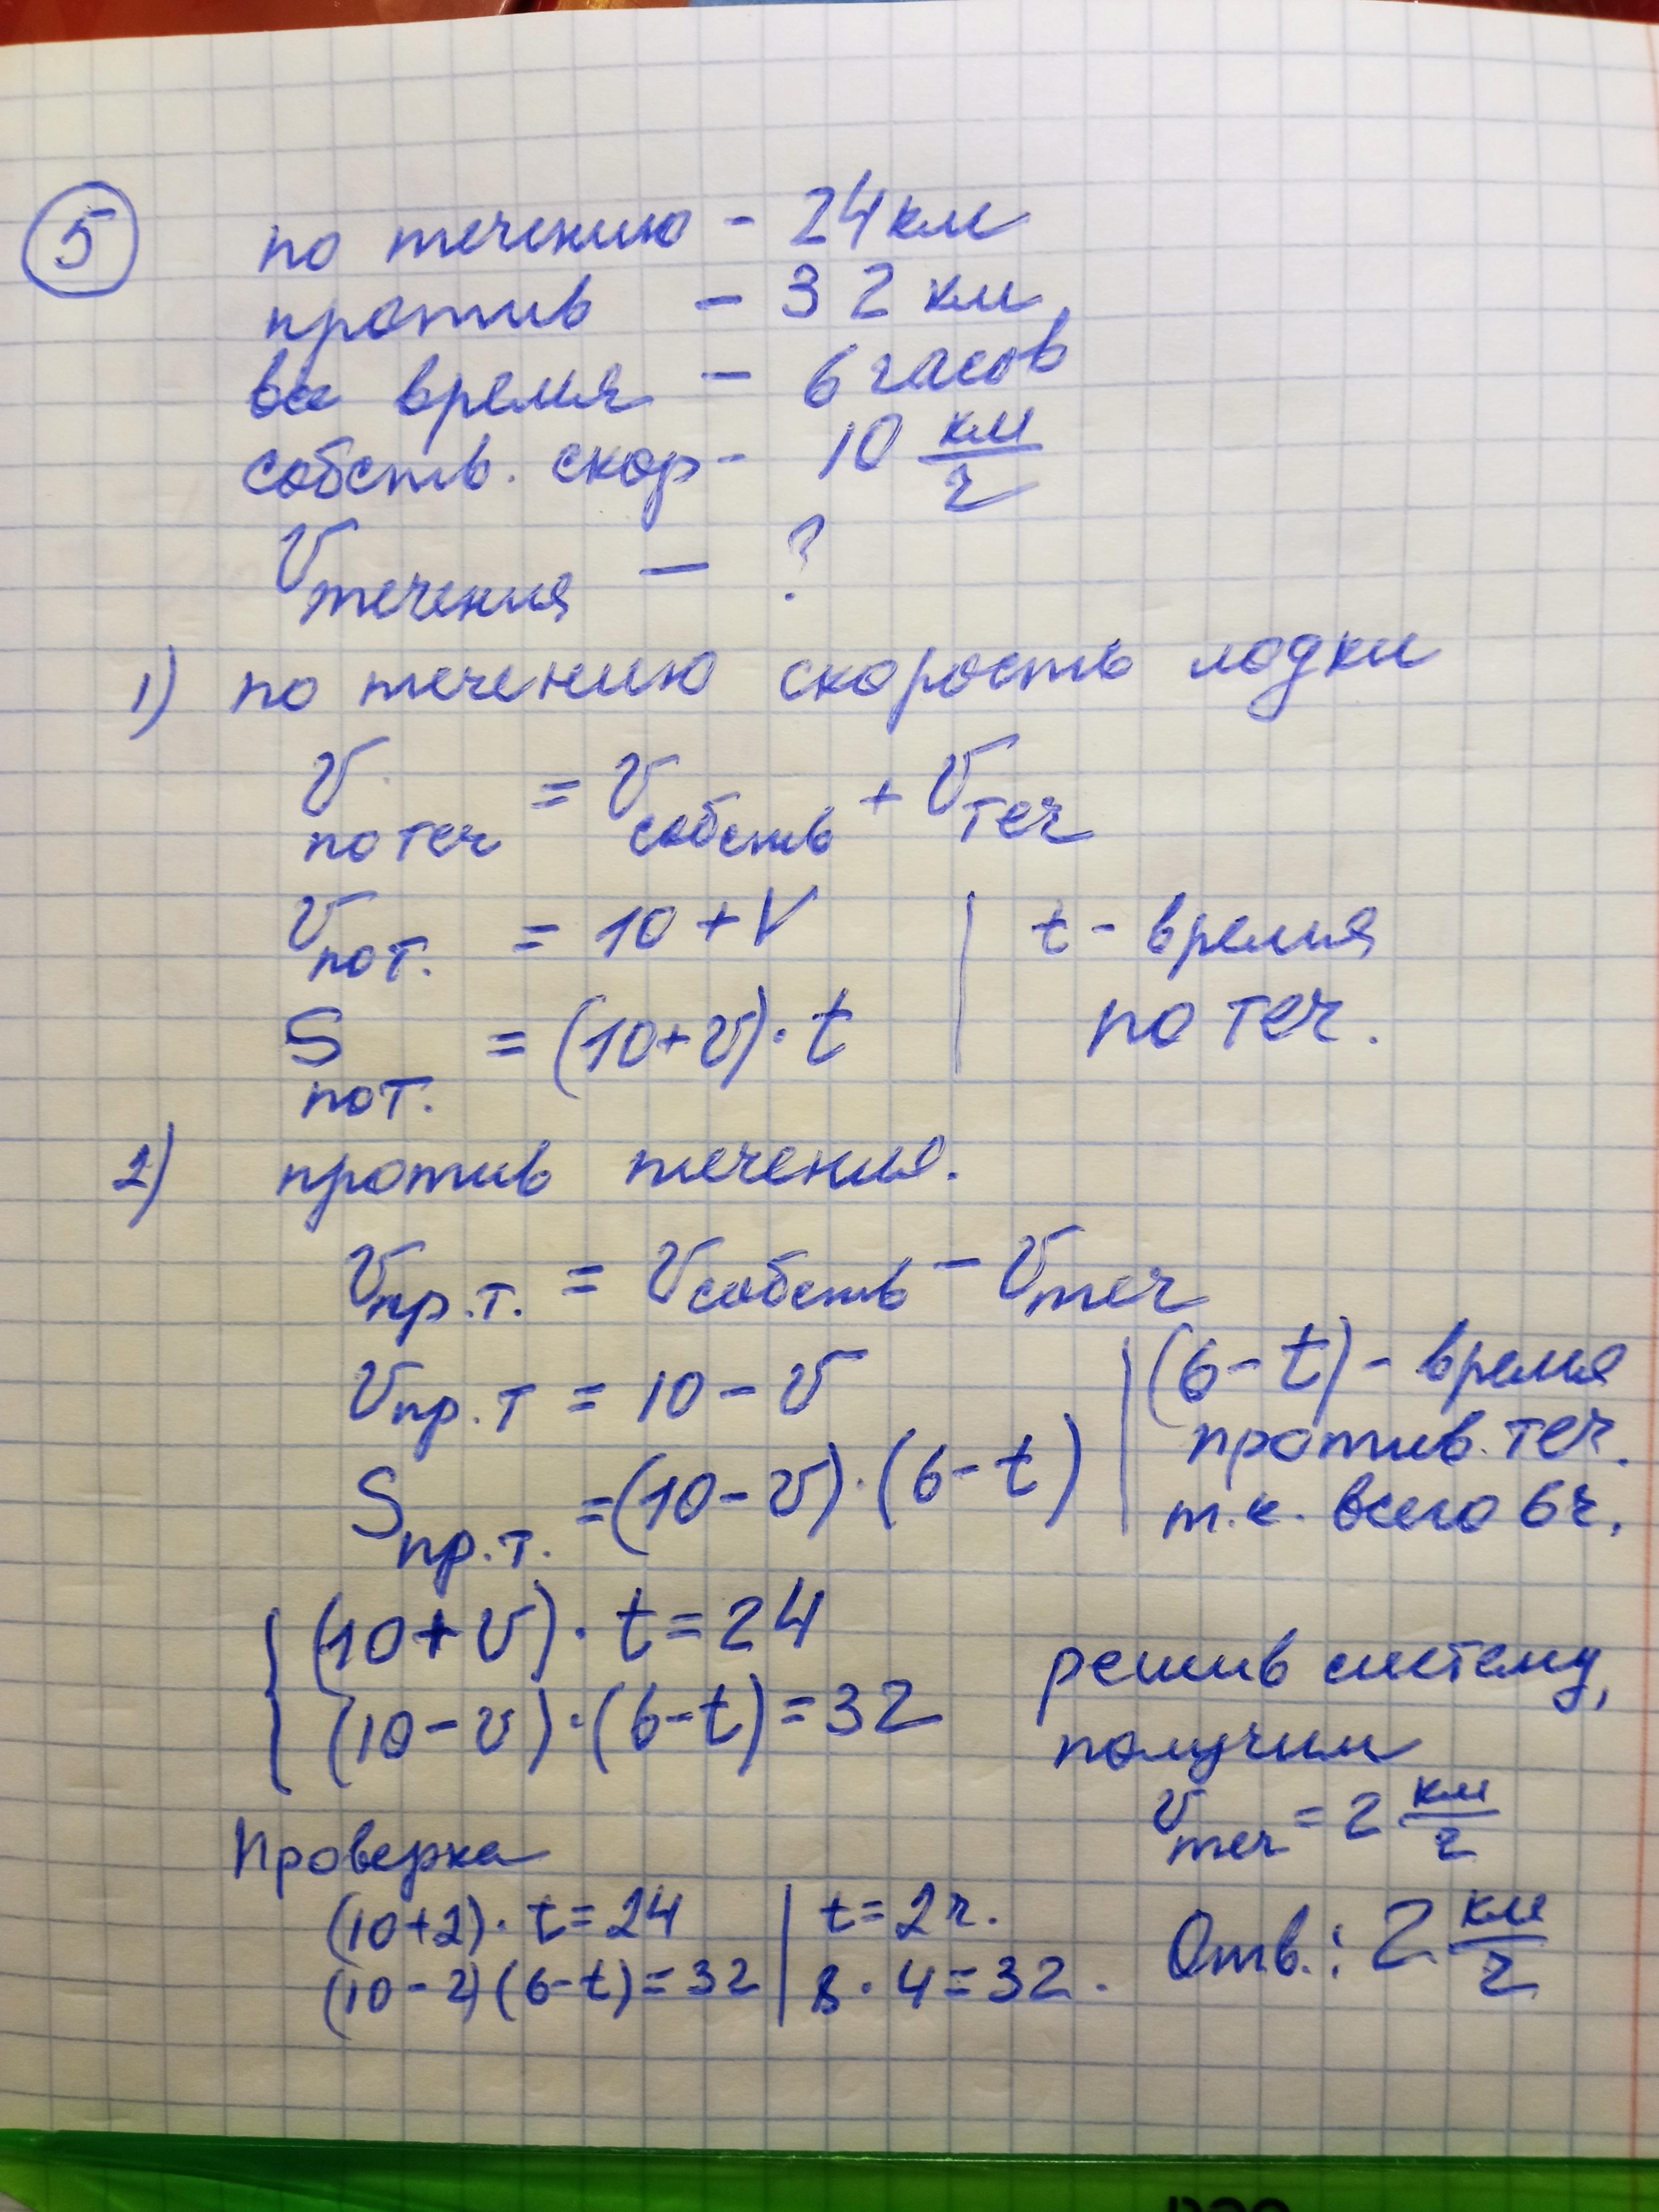 5
по течению - 24 км
против - 32 км
все время - 6 часов
собств. скор - 10 км/ч
Vтечения - ?
1) по течению скорость лодки
V по теч = V собств + V теч
V по т. = 10 + V | t - время
S по т. = (10+V)·t | по теч.
2) против течения.
V пр.т. = V собств - V теч
V пр.т = 10 - V | (6-t) - время
против. теч.
S пр.т. = (10-V)·(6-t) | т.к. всего 6ч.
(10+V)·t=24
(10-V)·(6-t)=32
решив систему,
получим
V теч = 2 км/ч
Проверка
(10+2)·t=24 | t=2ч.
(10-2)(6-t)=32 | 8·4=32.
Отв.: 2 км/ч